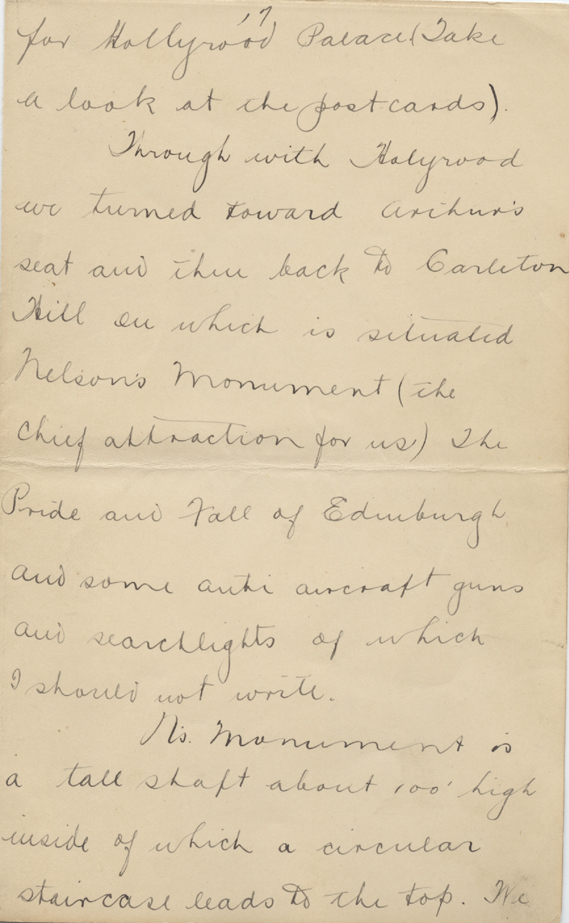 17
for Hollyrood Palace (Take
a look at the postcards).
Through with Holyrood
we turned toward Arthur's
seat and then back to Carleton
Hill on which is situated
Nelson's Monument (the
chief attraction for us) The
Pride and Fall of Edinburgh
and some anti aircraft guns
and searchlights of which
I should not write.
N's. Monument is
a tall shaft about 100' high
inside of which a circular
staircase leads to the top. We